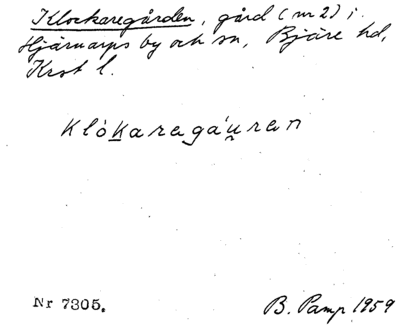 Klockaregården, gård (nr 2) i
Hjärnarps by och sn, Bjäre hd,
Krst l.
klòkaragáu̯ran
Nr 7305.
B. Pamp 1959